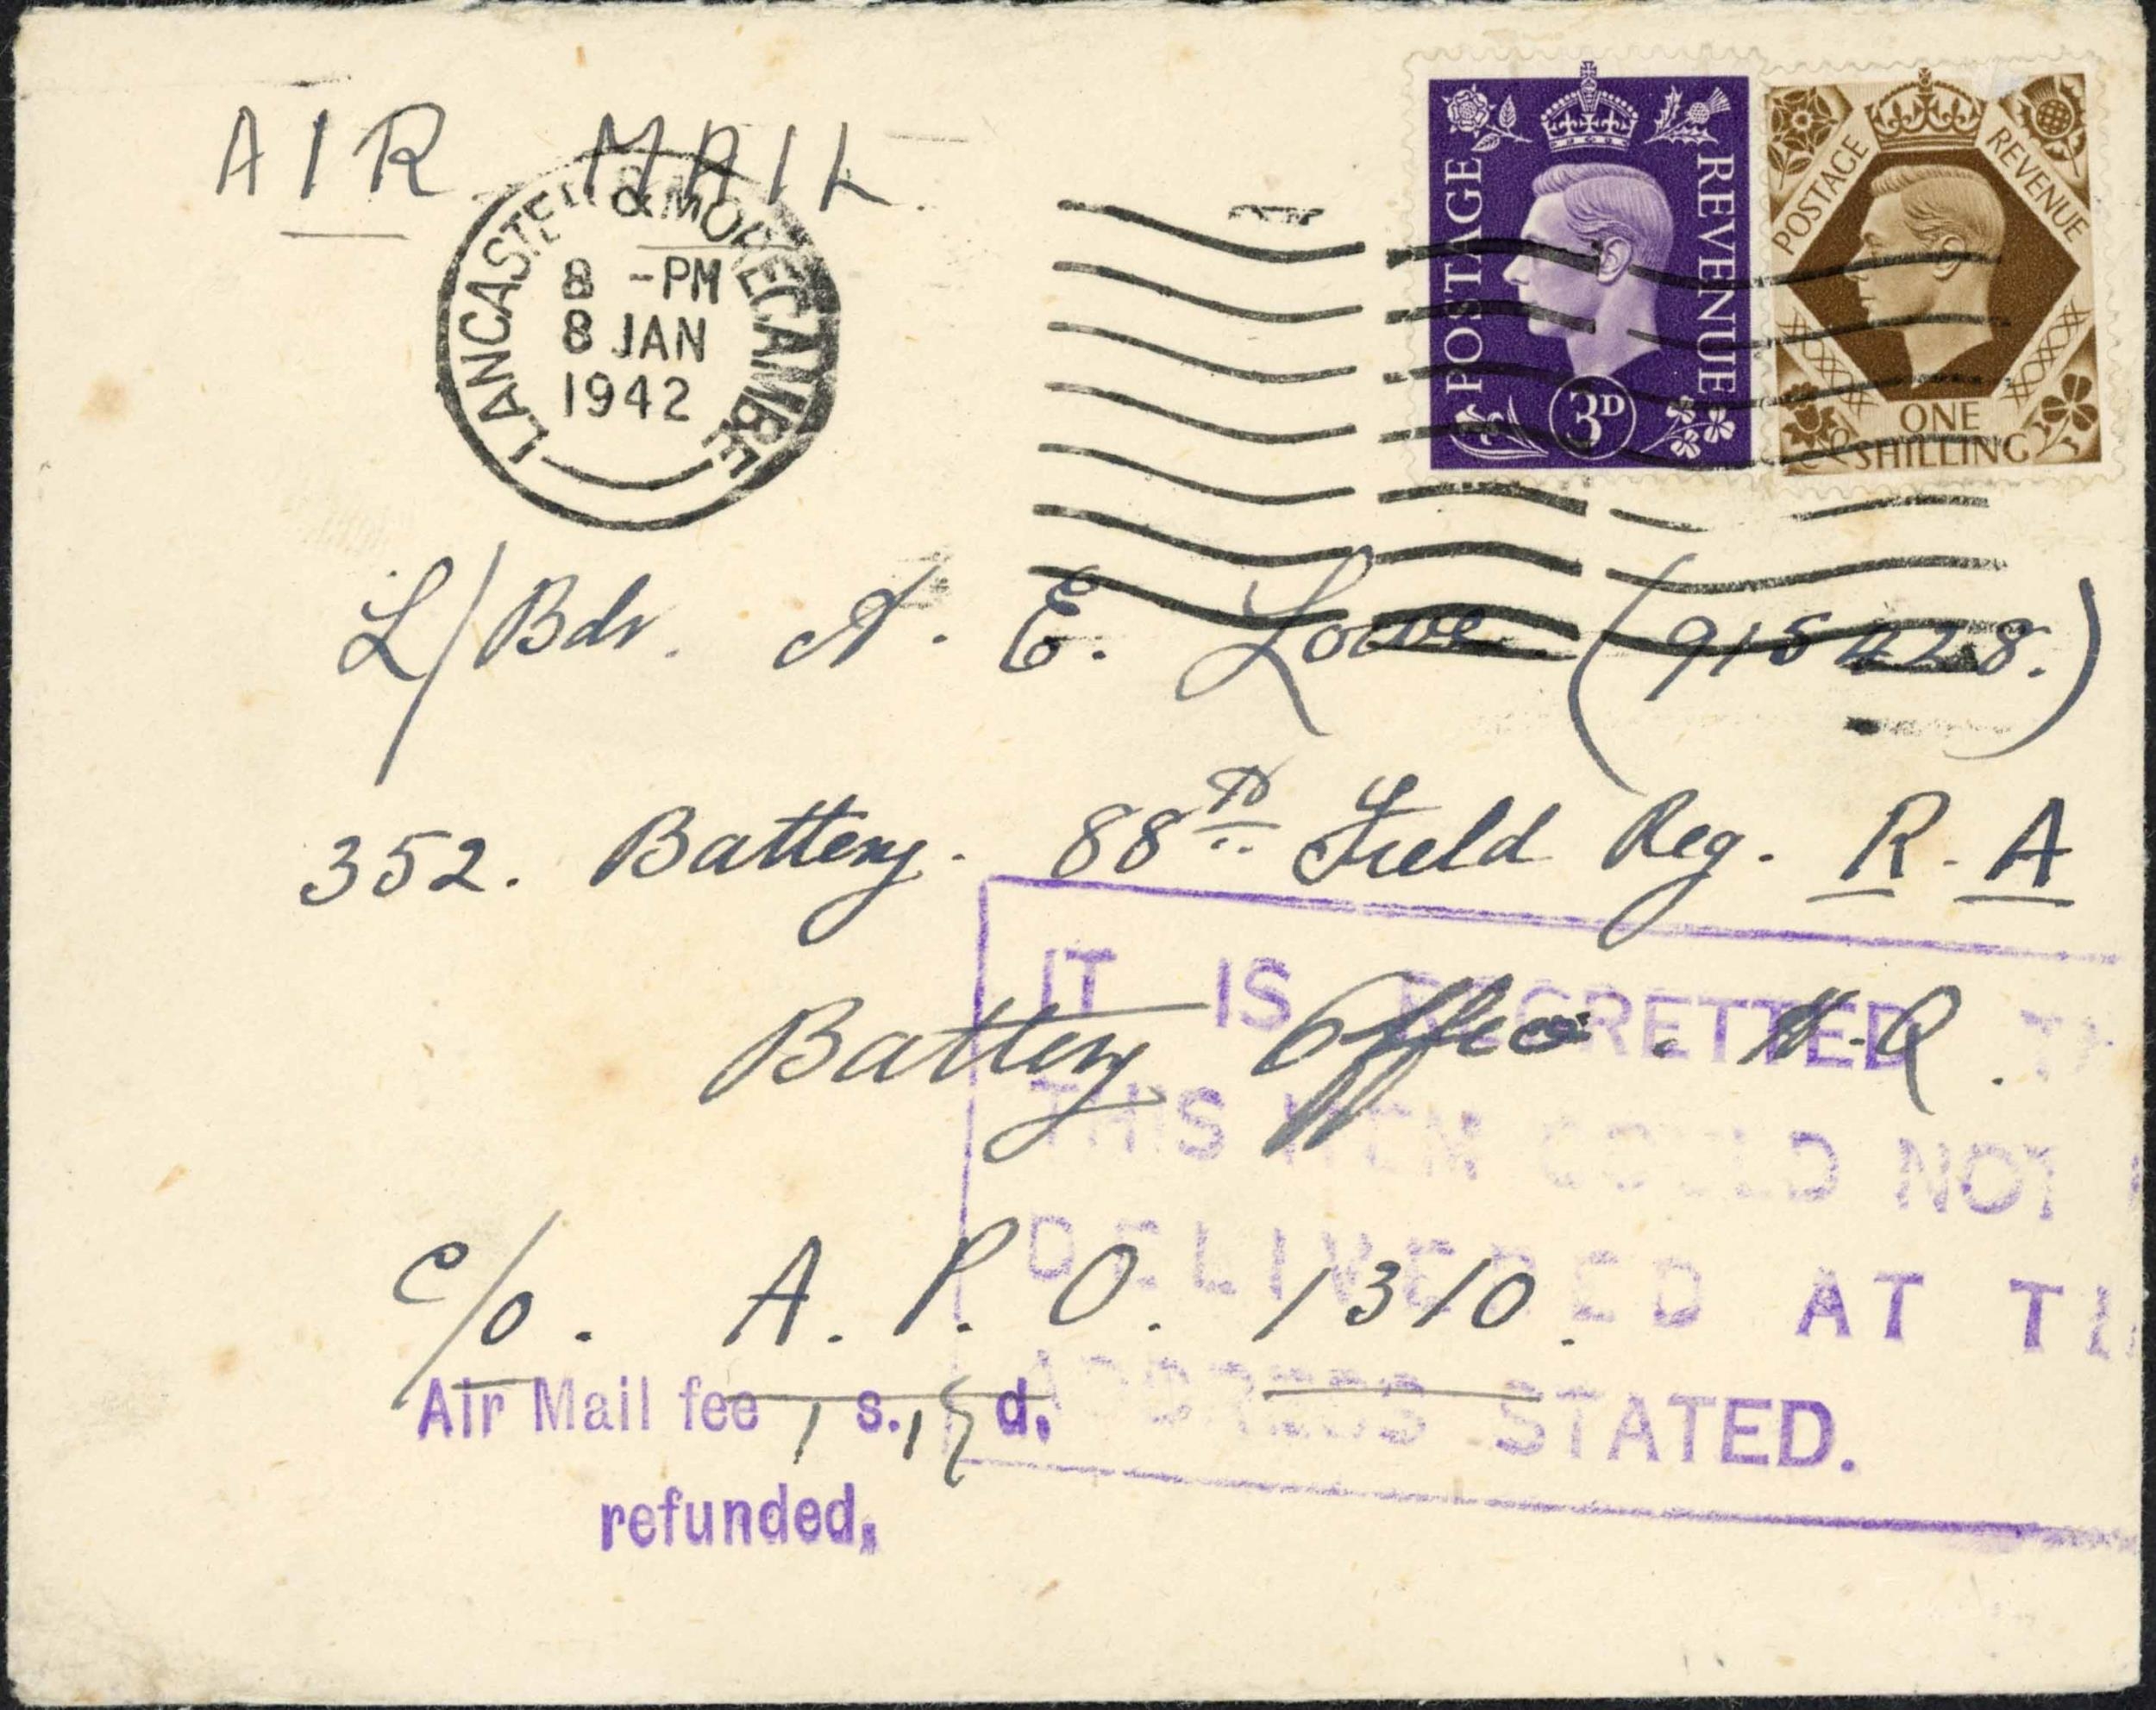 AIR MAIL.
LANCASTER & MORECAMBE
8 - PM
8 JAN
1942
POSTAGE REVENUE
3D
POSTAGE REVENUE
ONE
SHILLING
L/Bdr. A. E. Lowe. (915428.)
352. Battery. 88TH Field Reg. R. A
Battery Office. H.Q.
c/o. A. P. O. 1310.
IT IS REGRETTED TH
THIS ITEM COULD NOT
DELIVERED AT TH
ADDRESS STATED.
Air Mail fee 1 s. 1½ d.
refunded.